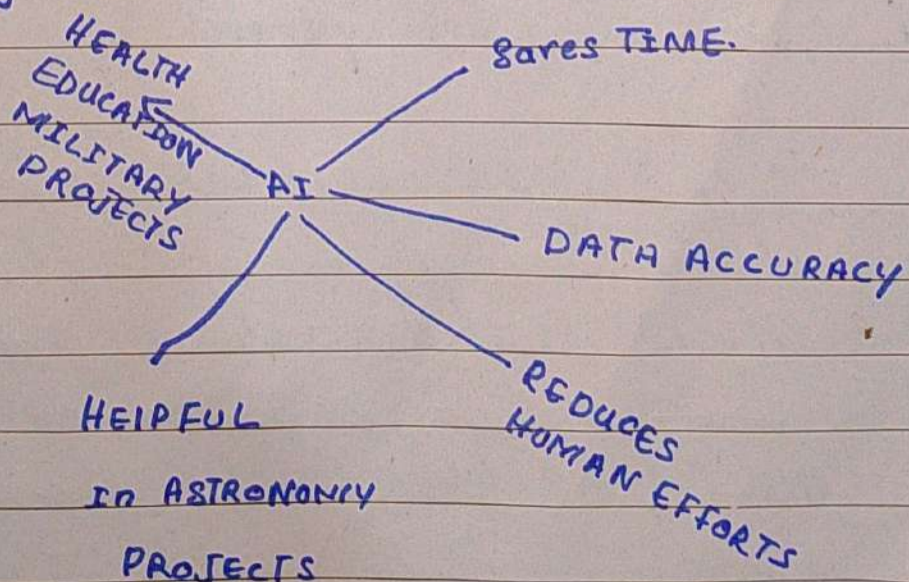 HEALTH
EDUCATION
MILITARY
PROJECTS
saves TIME.
AI
DATA ACCURACY
REDUCES
HUMAN EFFORTS
HELPFUL
In ASTRONOMY
PROJECTS